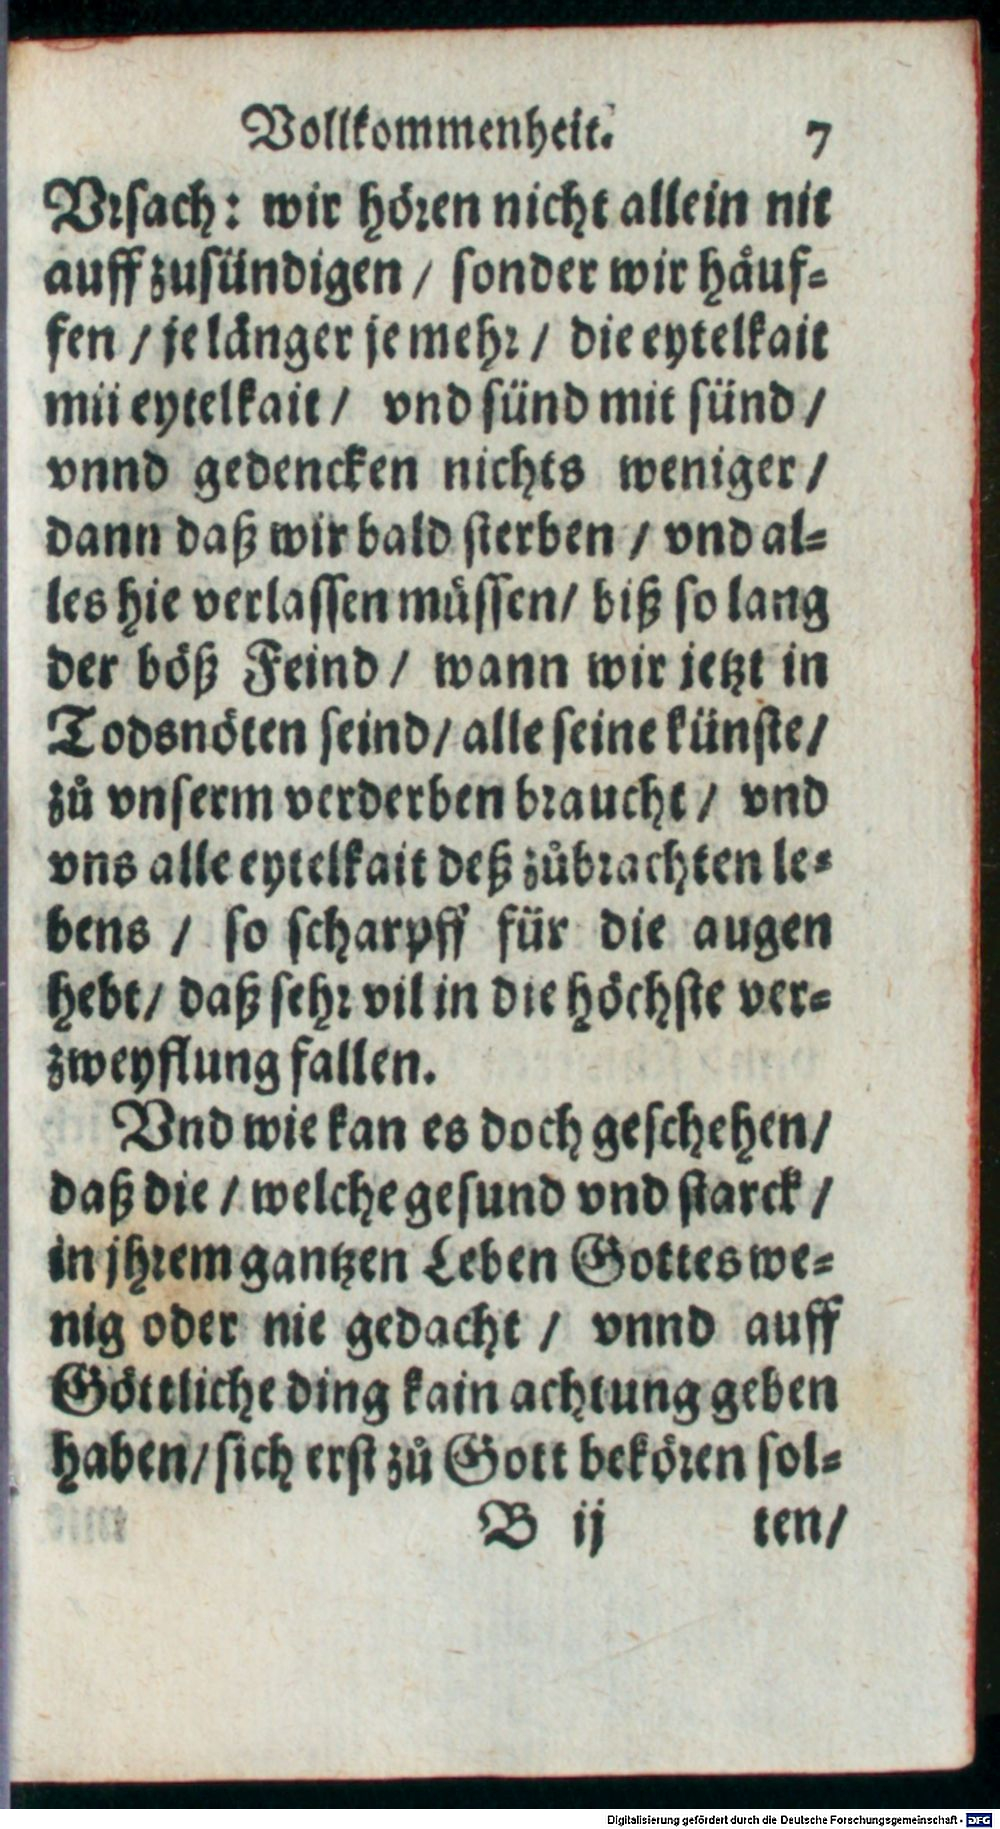 Vollkommenheit. 7
Vrsach: wir hören nicht allein nit
auff zusündigen / sonder wir häuf⸗
fen / je länger je mehr / die eytelkait
mii eytelkait / vnd sünd mit sünd /
vnnd gedencken nichts weniger /
dann daß wir bald sterben / vnd al⸗
les hie verlassen müssen / biß so lang
der böß Feind / wann wir jetzt in
Todsnöten seind / alle seine künste /
zů vnserm verderben braucht / vnd
vns alle eytelkait deß zůbrachten le⸗
bens / so scharpff für die augen
hebt / daß sehr vil in die höchste ver⸗
zweyflung fallen.
Vnd wie kan es doch geschehen /
daß die / welche gesund vnd starck /
in jhrem gantzen Leben Gottes we⸗
nig oder nie gedacht / vnnd auff
Göttliche ding kain achtung geben
haben / sich erst zů Gott bekören sol⸗
B ij ten /
Digitalisierung gefördert durch die Deutsche Forschungsgemeinschaft - DFG